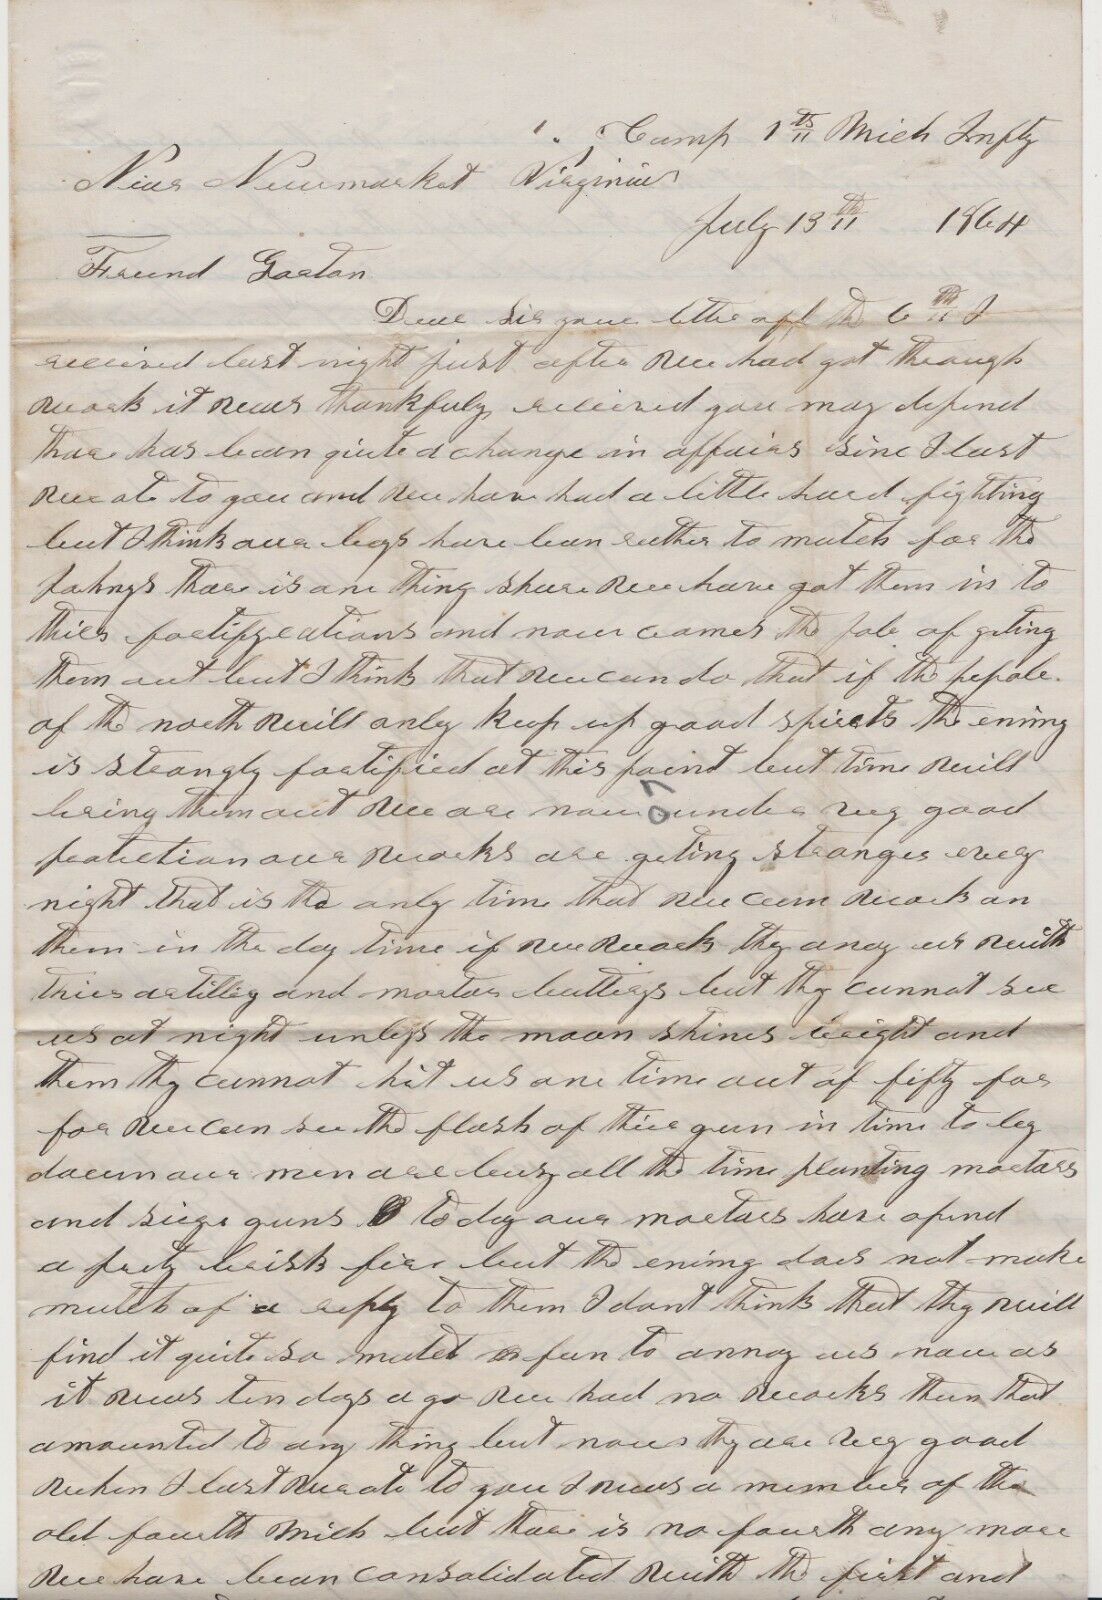 Camp 1th Mich Infty
Near Newmarket Virginia
July 13th 1864
Freund Gorton
Dear sir your letter off the 6th I
received last night just after we had got through
work it was thankfuly received you may depend
thare has bean quite a change in affairs sinc I last
wrote to you and we have had a little hard fighting
but I think our boys have ben rather to mutch for the
Johnys thare is one thing shure we have got them in to
thier fortifycations and now comes the job of geting
them out but I think that we can do that if the pepole
of the north will only keep up good spirets the enimy
is strongly fortified at this point but time will
bring them out we are now under very good
protection our works are geting stronger every
night that is the only time that we can work on
them in the day time if we work thy anoy us with
thier artillery and mortar batterys but thy cannot see
us at night unless the moon shines bright and
them thy cannot hit us one time out of fifty for
for we can see the flash of thier gun in time to lay
down our men are busy all the time planting mortars
and siege guns to day our mortars have opend
a prety brisk fire but the enimy does not make
mutch of a reply to them I dont think that thy will
find it quite so mutch fun to annoy us now as
it was ten days a go we had no works then that
amounted to any thing but now thy are very good
when I last wrote to you I was a member of the
old fourth Mich but thare is no fourth any more
we have bean consolidated with the first and